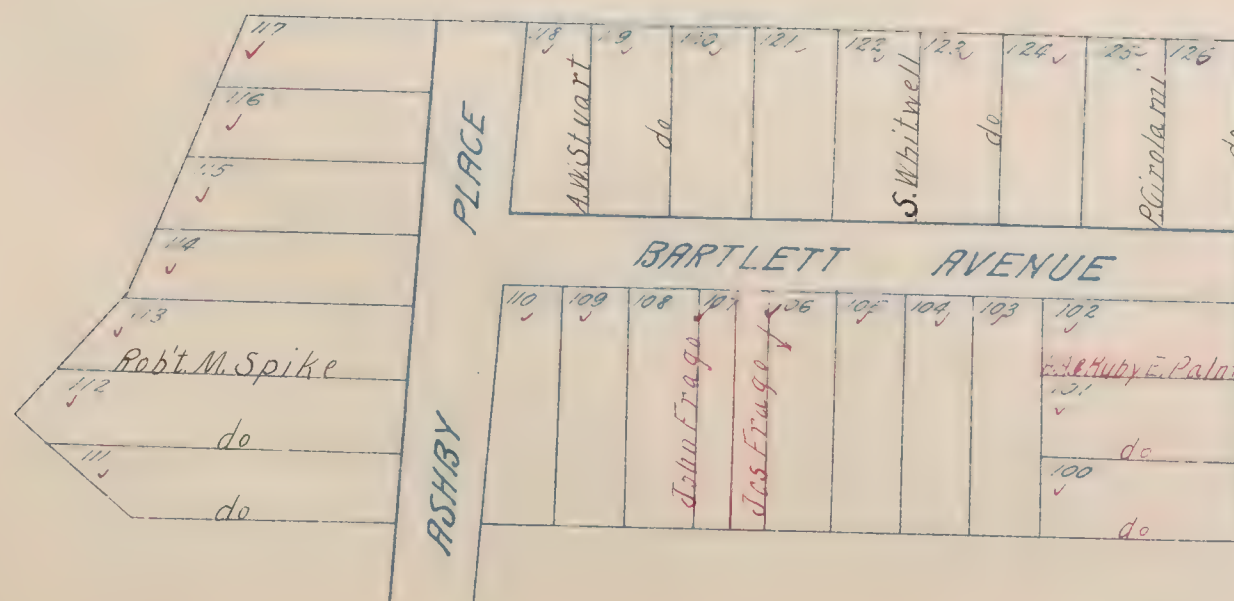 117
116
115
114
113
Rob't. M. Spike
112
do
111
do
ASHBY PLACE
118
A.W. Stuart
119
do
120
121
122
S. Whitwell
123
do
124
125
P. Girolami
126
do
BARTLETT AVENUE
110
109
108
John Frago
107
Jos Frago
106
105
104
103
102
Ruby E. Palm
101
do
100
do